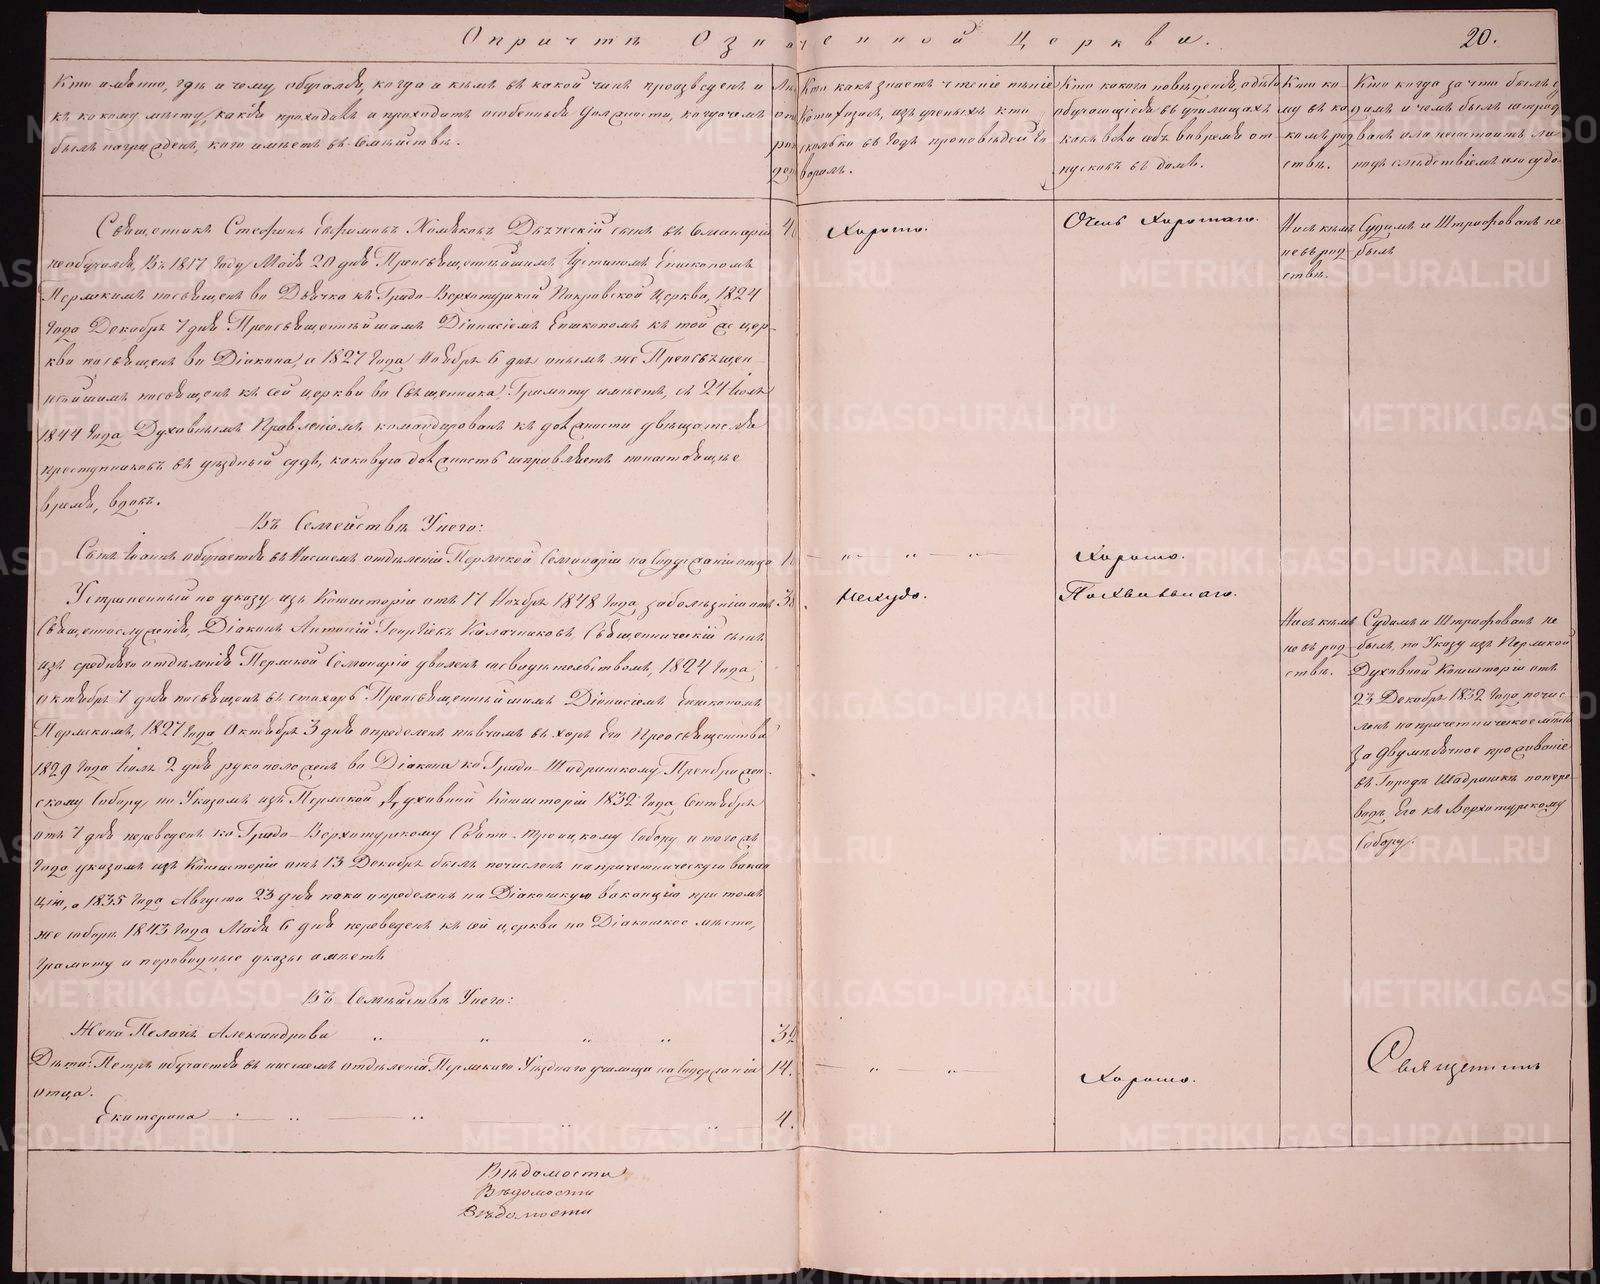 О причтѣ Означенной Церкви.
20.
Кто имянно, гдѣ и чему обучался, когда и кѣмъ въ какой чинъ произведенъ и
къ какому мѣсту, какія проходилъ и проходитъ особенныя должности, когда чемъ
былъ награжденъ, кого имѣетъ въ Семействѣ.
Кто какъ знаетъ чтеніе пѣніе
Катихизисъ, изъ ученыхъ кто
сколько въ годъ проповѣдей го
ворилъ.
Кто какого поведенія, а дѣти
обучающіеся въ училищахъ
какъ вели себя во время от
пусковъ въ домъ.
Кто ко
му въ ка
комъ род
ствѣ.
Кто когда за что былъ су
димъ и чемъ былъ штраф
ванъ или несостоитъ ли
подъ слѣдствіемъ или судо
Священникъ Стефанъ Ефимовъ Хомяковъ Дьяческій сынъ въ Семинаріи
необучался, Въ 1817 Году Маія 20 дня Преосвященнѣйшимъ Іустиномъ Епископомъ
Пермскимъ посвященъ во Дьячка къ Градо-Верхотурской Покровской Церкви, 1824
Года Декабря 7 дня Преосвященнѣйшимъ Діонисіемъ Епископомъ къ той же цер-
кви посвященъ во Діакона, а 1827 Года Ноября 6 дня онымъ же Преосвящен
нѣйшимъ посвященъ къ сей церкви во Священника, Грамоту имѣетъ, съ 24 Іюля
1844 Года Духовнымъ Правленіемъ командированъ къ должности увѣщателя
преступниковъ въ уѣздный судъ, каковую должность исправляетъ понастоящее
время, вдовъ.
Въ Семействѣ Унего:
Сынъ Іоаннъ обучается въ Нисшемъ отдѣленіи Пермской Семинаріи на Содержаніи отца
Устраненный по указу изъ Консисторіи отъ 17 Ноября 1848 Года, за болѣзнію отъ
Священнослуженія, Діаконъ Антоній Георгіевъ Калачниковъ, Священническій сынъ
изъ средняго отдѣленія Пермской Семинаріи уволенъ съ свидѣтельствомъ, 1824 Года,
Октября 7 дня посвященъ въ стихарь Преосвященнѣйшимъ Діонисіемъ Епископомъ
Пермскимъ, 1827 Года Октября 3 дня опредѣленъ пѣвчимъ въ хоръ Его Преосвященства
1829 Года Іюля 2 дня рукоположенъ во Діакона ко Градо-Шадринскому Преображен-
скому Собору, по Указомъ изъ Пермской Духовной Консисторіи 1832 Года Сентября
отъ 7 дня переведенъ ко Градо-Верхотурскому Свято-Троицкому Собору и того жъ
Года указомъ изъ Консисторіи отъ 13 Декабря былъ почисленъ на причетническую вакан
цію, а 1835 Года Августа 23 дня паки опредѣленъ на Діаконскую ваканцію при томъ
же соборѣ 1843 Года Маія 6 дня переведенъ къ сей церкви на Діаконское мѣсто,
грамоту и переводные указы имѣетъ
Въ Семействѣ Унего:
Жена Пелагія Александрова 39
Дѣти: Петръ обучается въ нисшемъ отдѣленіи Пермскаго Уѣзднаго училища на Содержаніи 14.
отца.
Екатерина 4.
Хорошо.
Очень Хорошаго.
Ни съ кѣмъ
не въ род
ствѣ.
Судимъ и Штрафованъ не
былъ
Хорошо.
Нехудо.
Похвальнаго.
Ни съ кѣмъ
не въ род
ствѣ.
Судимъ и Штрафованъ не
былъ, по Указу изъ Пермской
Духовной Консисторіи отъ
23 Декабря 1832 Года почис-
ленъ на причетническое мѣсто
За двумѣсячное проживаніе
въ Городѣ Шадринскѣ по пере-
водѣ Его къ Верхотурскому
Собору.
Хорошо.
Священникъ
Вѣдомости
Вѣдомости
Вѣдомости
METRIKI.GASO-URAL.RU